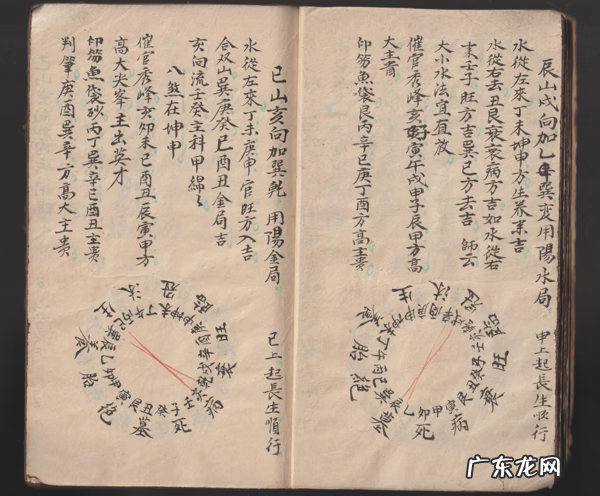 辰山戌向加乙辛巽变用陽水局 申上起長生順行
水從左來丁未坤申方生养来吉
水從右去丑艮衰病方吉如水從右
来壬子旺方吉巽巳方去吉 師云
大小水法宜直放
催官秀峰亥寅午戌甲子辰甲方高
大主貴
印笏魚袋艮丙辛巳庚丁酉方高主貴
巳山亥向加巽乾 用陽金局 巳上起長生順行
水從左來丁未庚申官旺方入吉
合双山巽庚癸巳酉丑金局吉
亥向流壬癸主科甲綿々
八煞在坤甲
催官秀峰亥卯未巳酉丑辰寅甲方
高大尖峯主出英才
印笏魚袋砂丙丁巽辛巳酉丑主貴
判肇庚酉巽辛方高大主贵
生
沐
冠
臨
旺
衰
病
死
墓
絶
胎
養
生
沐
冠
臨
旺
衰
病
死
墓
绝
胎
养
广东龙网